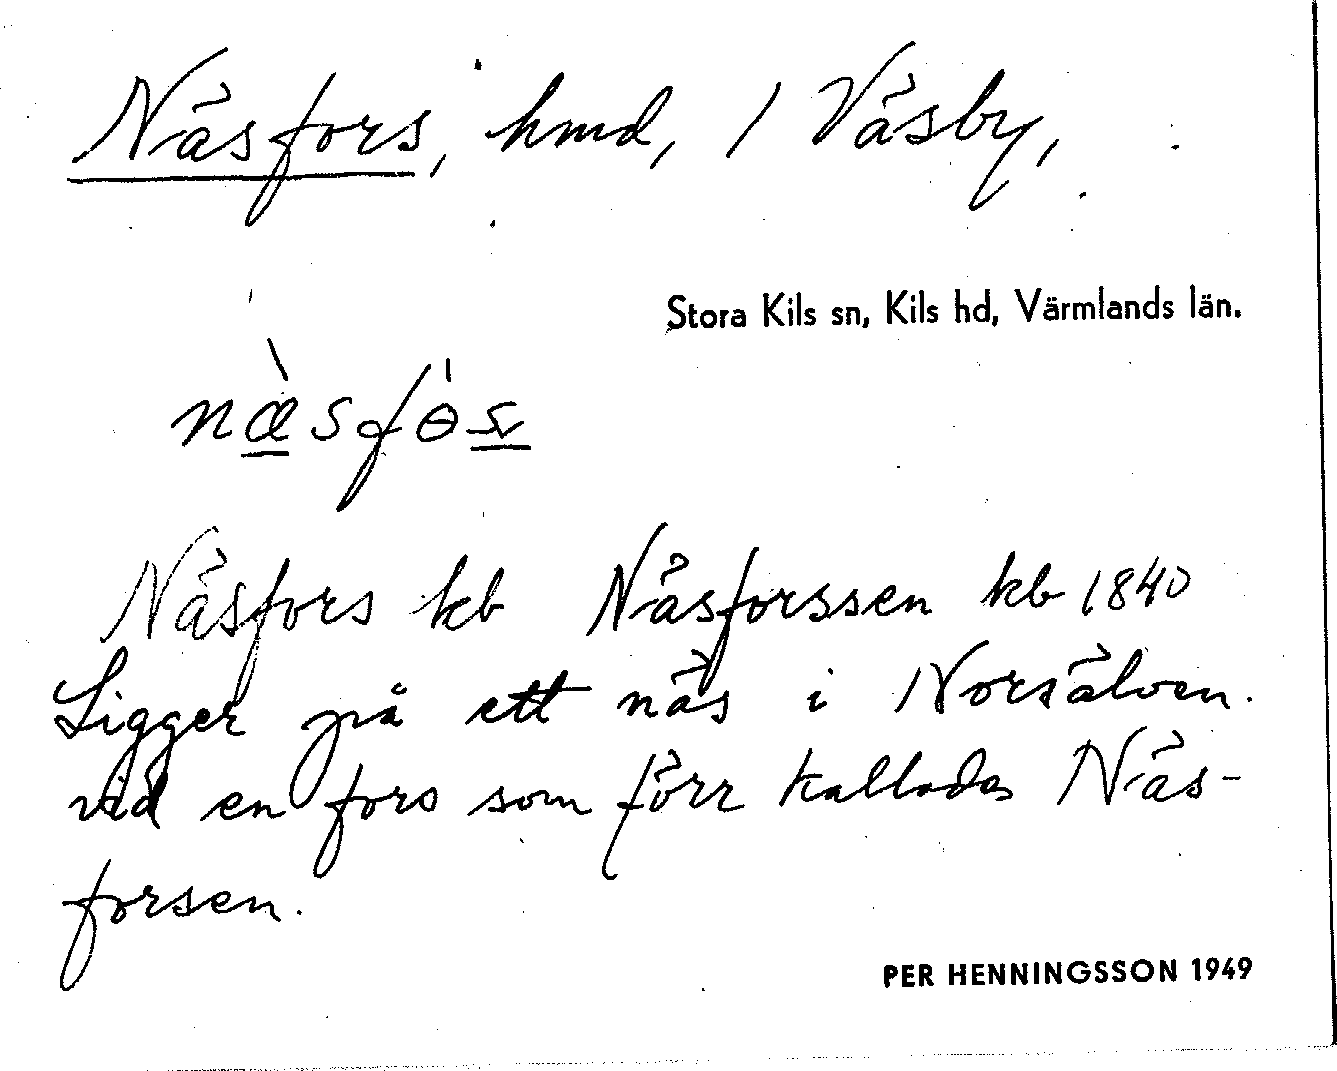 Näsfors, hmd, / Väsby,
Stora Kils sn, Kils hd, Värmlands län.
Näsfors kb Näsforssen kb 1840
Ligger på ett näs i Norsälven.
vid en fors som förr kallades Näs-
forsen.
PER HENNINGSSON 1949